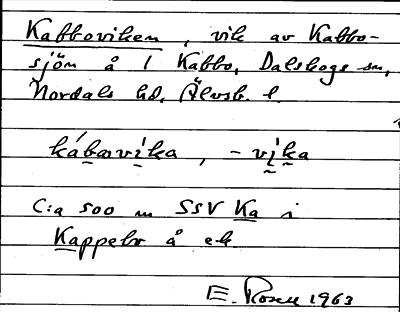 Kabboviken, vik av Kabbo-
sjön å 1 Kabbo, Dalskogs sn,
Nordals hd, Älvsb. l.
kábbovika, -vika
C:a 500 m SSV Ka i
Kappebo å ek
E. Rosell 1963